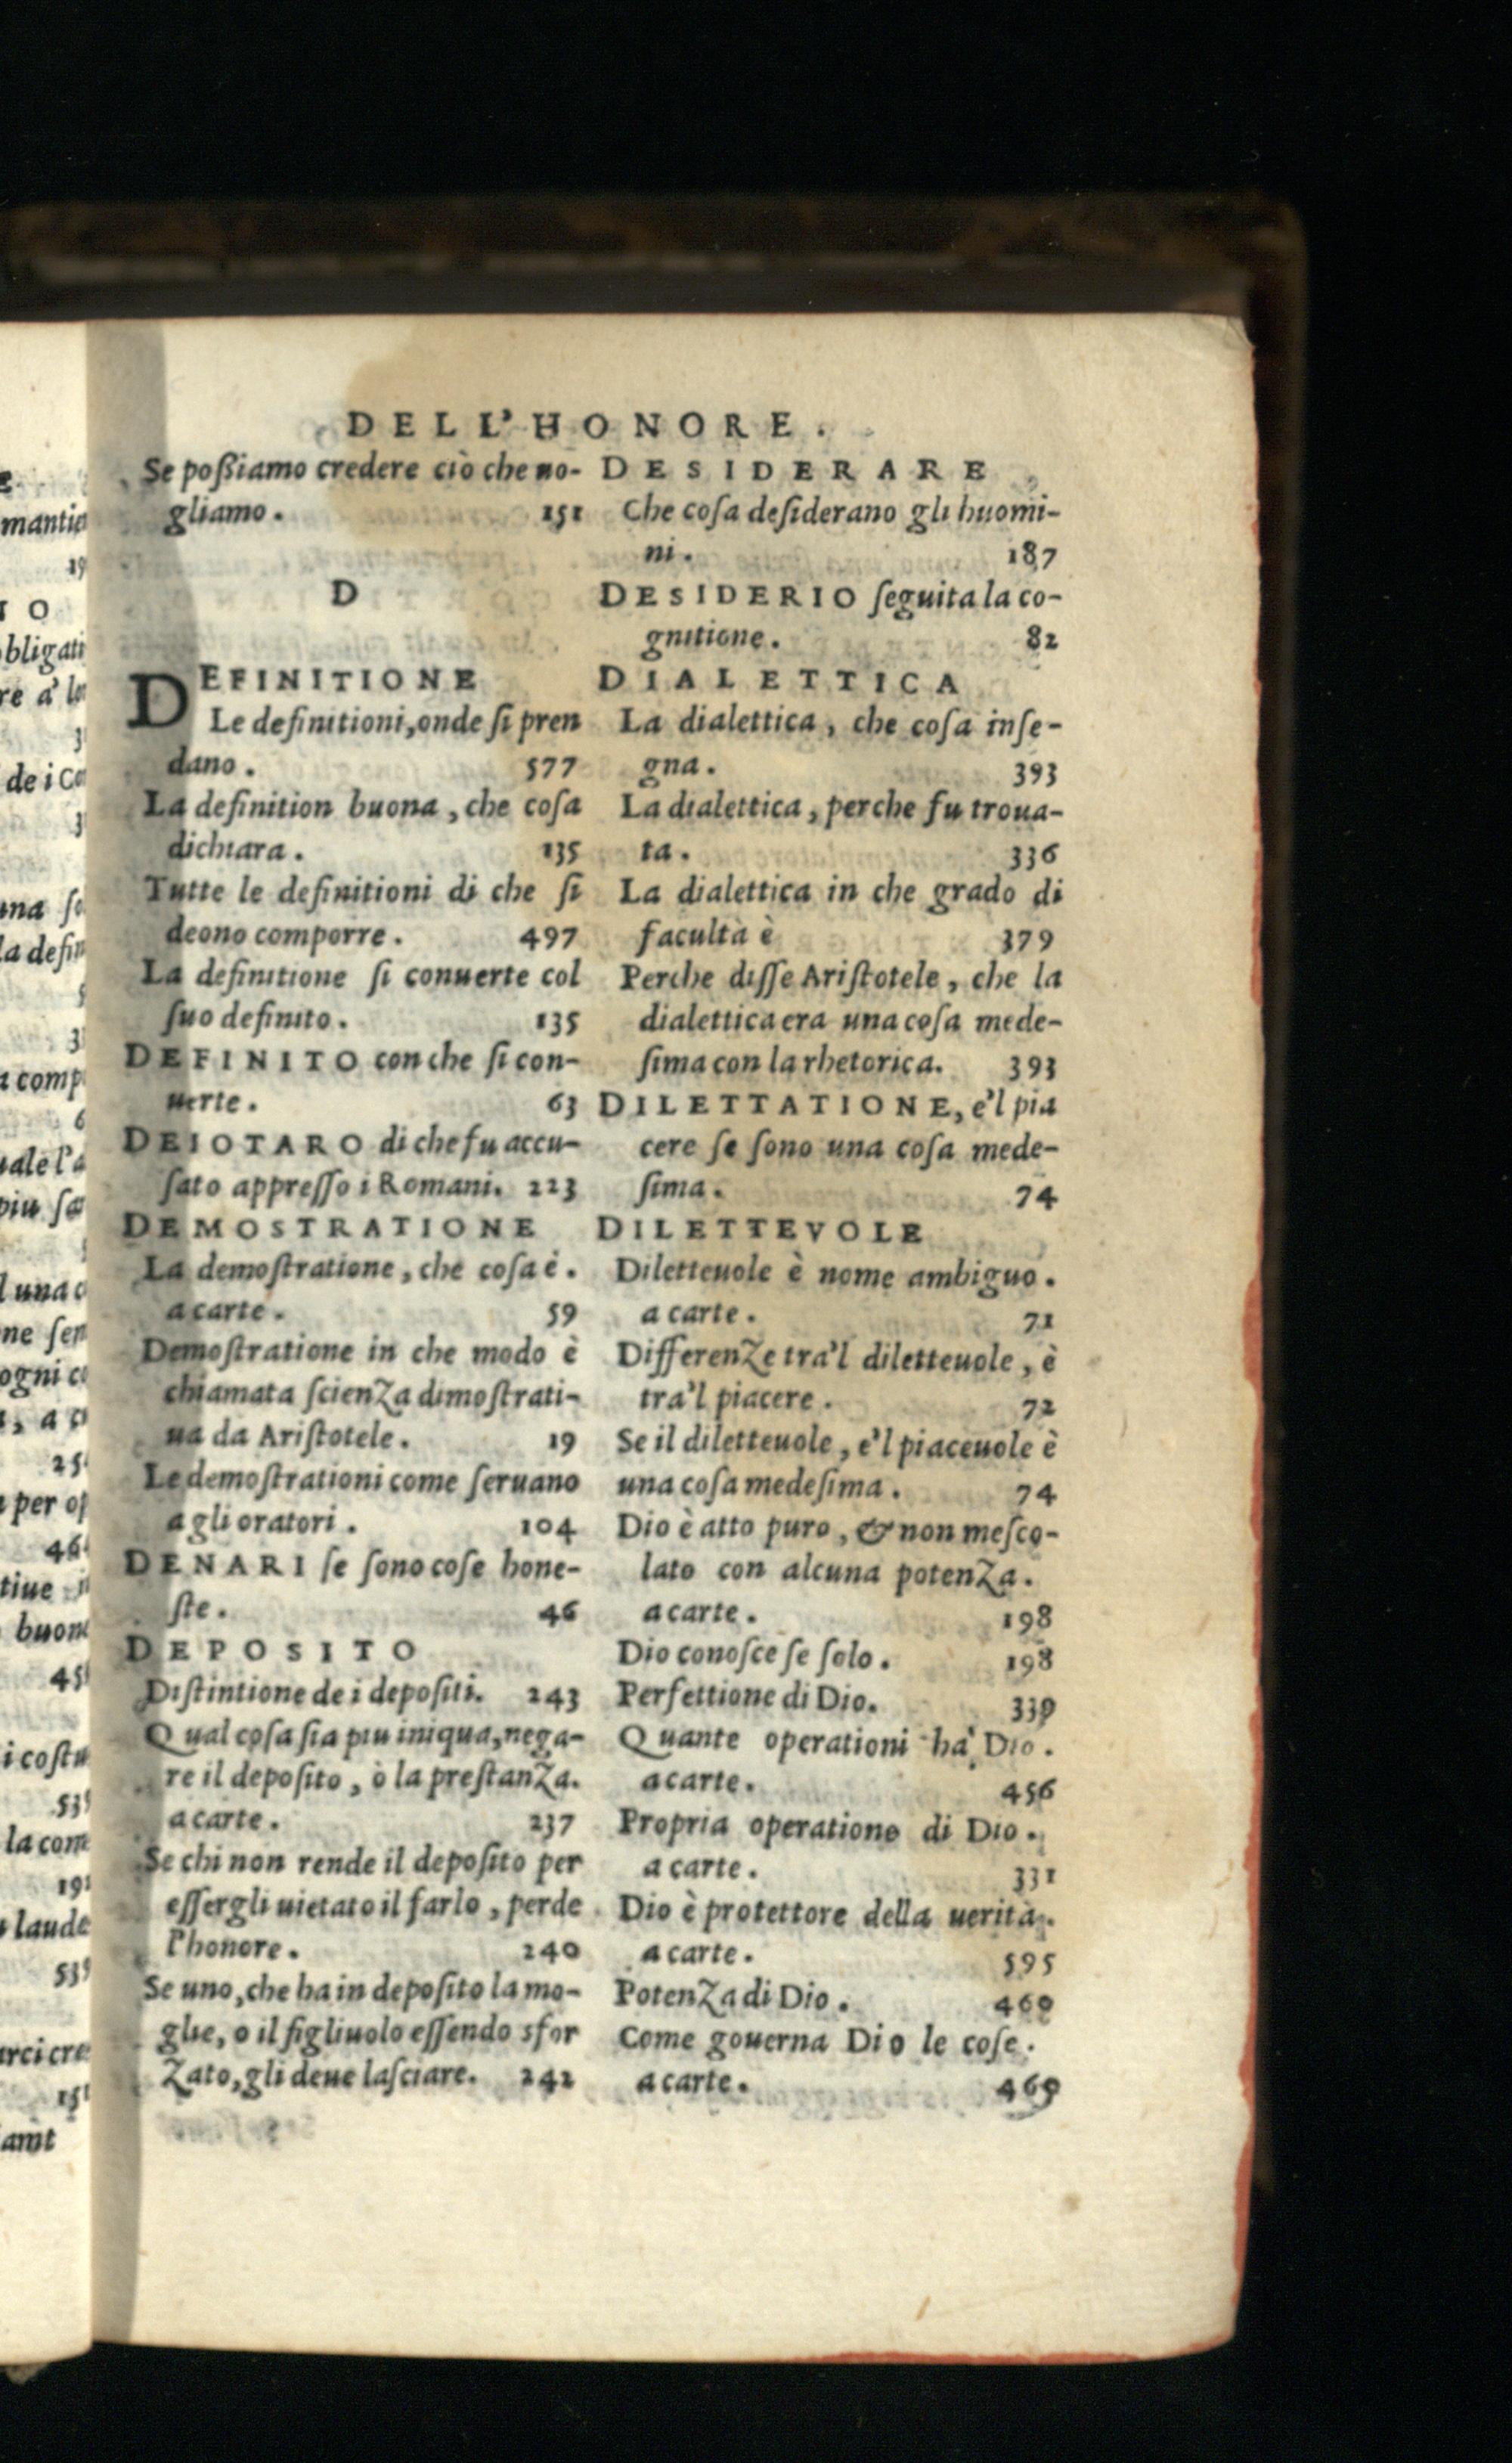 DELL'HONORE.
Se poßiamo credere ciò che uo-
gliamo. 151
D
DEFINITIONE
Le definitioni, onde ſi pren
dano. 577
La definition buona, che coſa
dichiara. 135
Tutte le definitioni di che ſi
deono comporre. 497
La definitione ſi conuerte col
ſuo definito. 135
DEFINITO con che ſi con-
uerte. 63
DEIOTARO di che fu accu-
ſato appreſſo i Romani. 223
DEMOSTRATIONE
La demoſtratione, che coſa è.
a carte. 59
Demoſtratione in che modo è
chiamata ſcienza dimoſtrati-
ua da Ariſtotele. 19
Le demoſtrationi come ſeruano
a gli oratori. 104
DENARI ſe ſono coſe hone-
ſte. 46
DEPOSITO
Diſtintione de i depoſiti. 243
Qual coſa ſia piu iniqua, nega-
re il depoſito, ò la preſtanza.
a carte. 237
Se chi non rende il depoſito per
eſſergli uietato il farlo, perde
l'honore. 240
Se uno, che ha in depoſito la mo-
glie, o il figliuolo eſſendo sfor
zato, gli deue laſciare. 242
DESIDERARE
Che coſa deſiderano gli huomi-
ni. 187
DESIDERIO ſeguita la co-
gnitione. 82
DIALETTICA
La dialettica, che coſa inſe-
gna. 393
La dialettica, perche fu troua-
ta. 336
La dialettica in che grado di
facultà è 379
Perche diſſe Ariſtotele, che la
dialettica era una coſa mede-
ſima con la rhetorica. 393
DILETTATIONE, e'l pia
cere ſe ſono una coſa mede-
ſima. 74
DILETTEVOLE
Diletteuole è nome ambiguo.
a carte. 71
Differenze tra'l diletteuole, è
tra'l piacere. 72
Se il diletteuole, e'l piaceuole è
una coſa medeſima. 74
Dio è atto puro, & non meſco-
lato con alcuna potenza.
a carte. 198
Dio conoſce ſe ſolo. 198
Perfettione di Dio. 339
Quante operationi ha Dio.
a carte. 456
Propria operatione di Dio.
a carte. 331
Dio è protettore della uerità.
a carte. 595
Potenza di Dio. 460
Come gouerna Dio le coſe.
a carte. 469